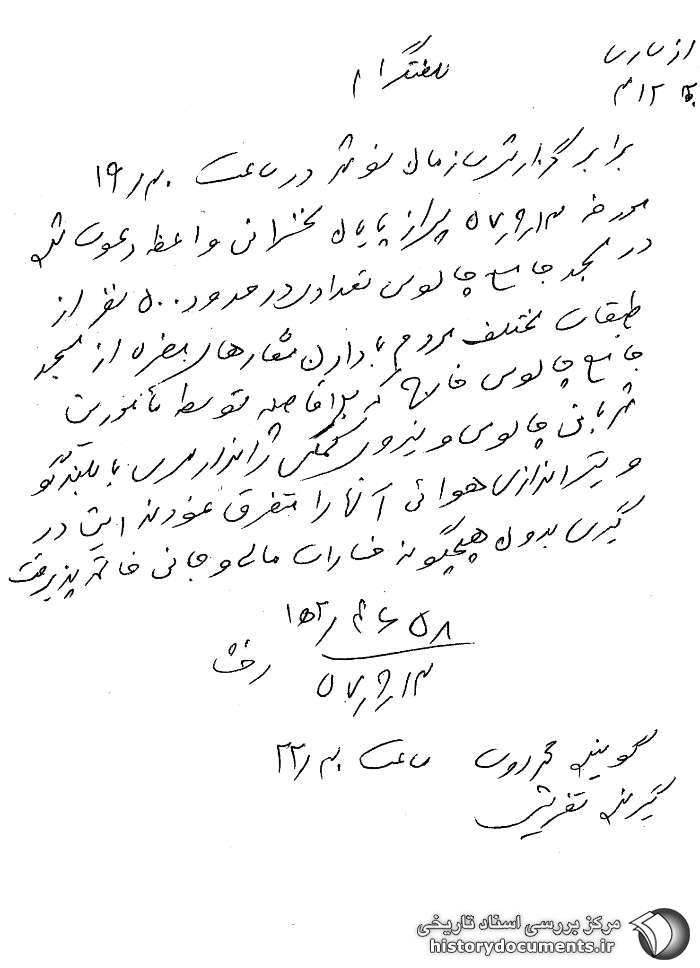 از ساری
به ۳۱۲
تلفنگرام
برابر گزارش سازمان نوشهر در ساعت ۱۹/۳۰
مورخه ۵۷/۹/۱۳ پس از پایان سخنرانی واعظ دعوت شده
در مسجد جامع چالوس تعدادی در حدود ۵۰۰ نفر از
طبقات مختلف مردم با دادن شعارهای مضره از مسجد
جامع چالوس خارج که بلافاصله توسط مأمورین
شهربانی چالوس و نیروی کمکی ژاندارمری با بلندگو
و تیراندازی هوائی آنها را متفرق نمودند این در
گیری بدون هیچگونه خسارات مالی و جانی خاتمه پذیرفت
۵۷/۹/۱۳
گوینده ساعت ۲۲/۳۰
گیرنده تفرشی
مرکز بررسی اسناد تاریخی
historydocuments.ir